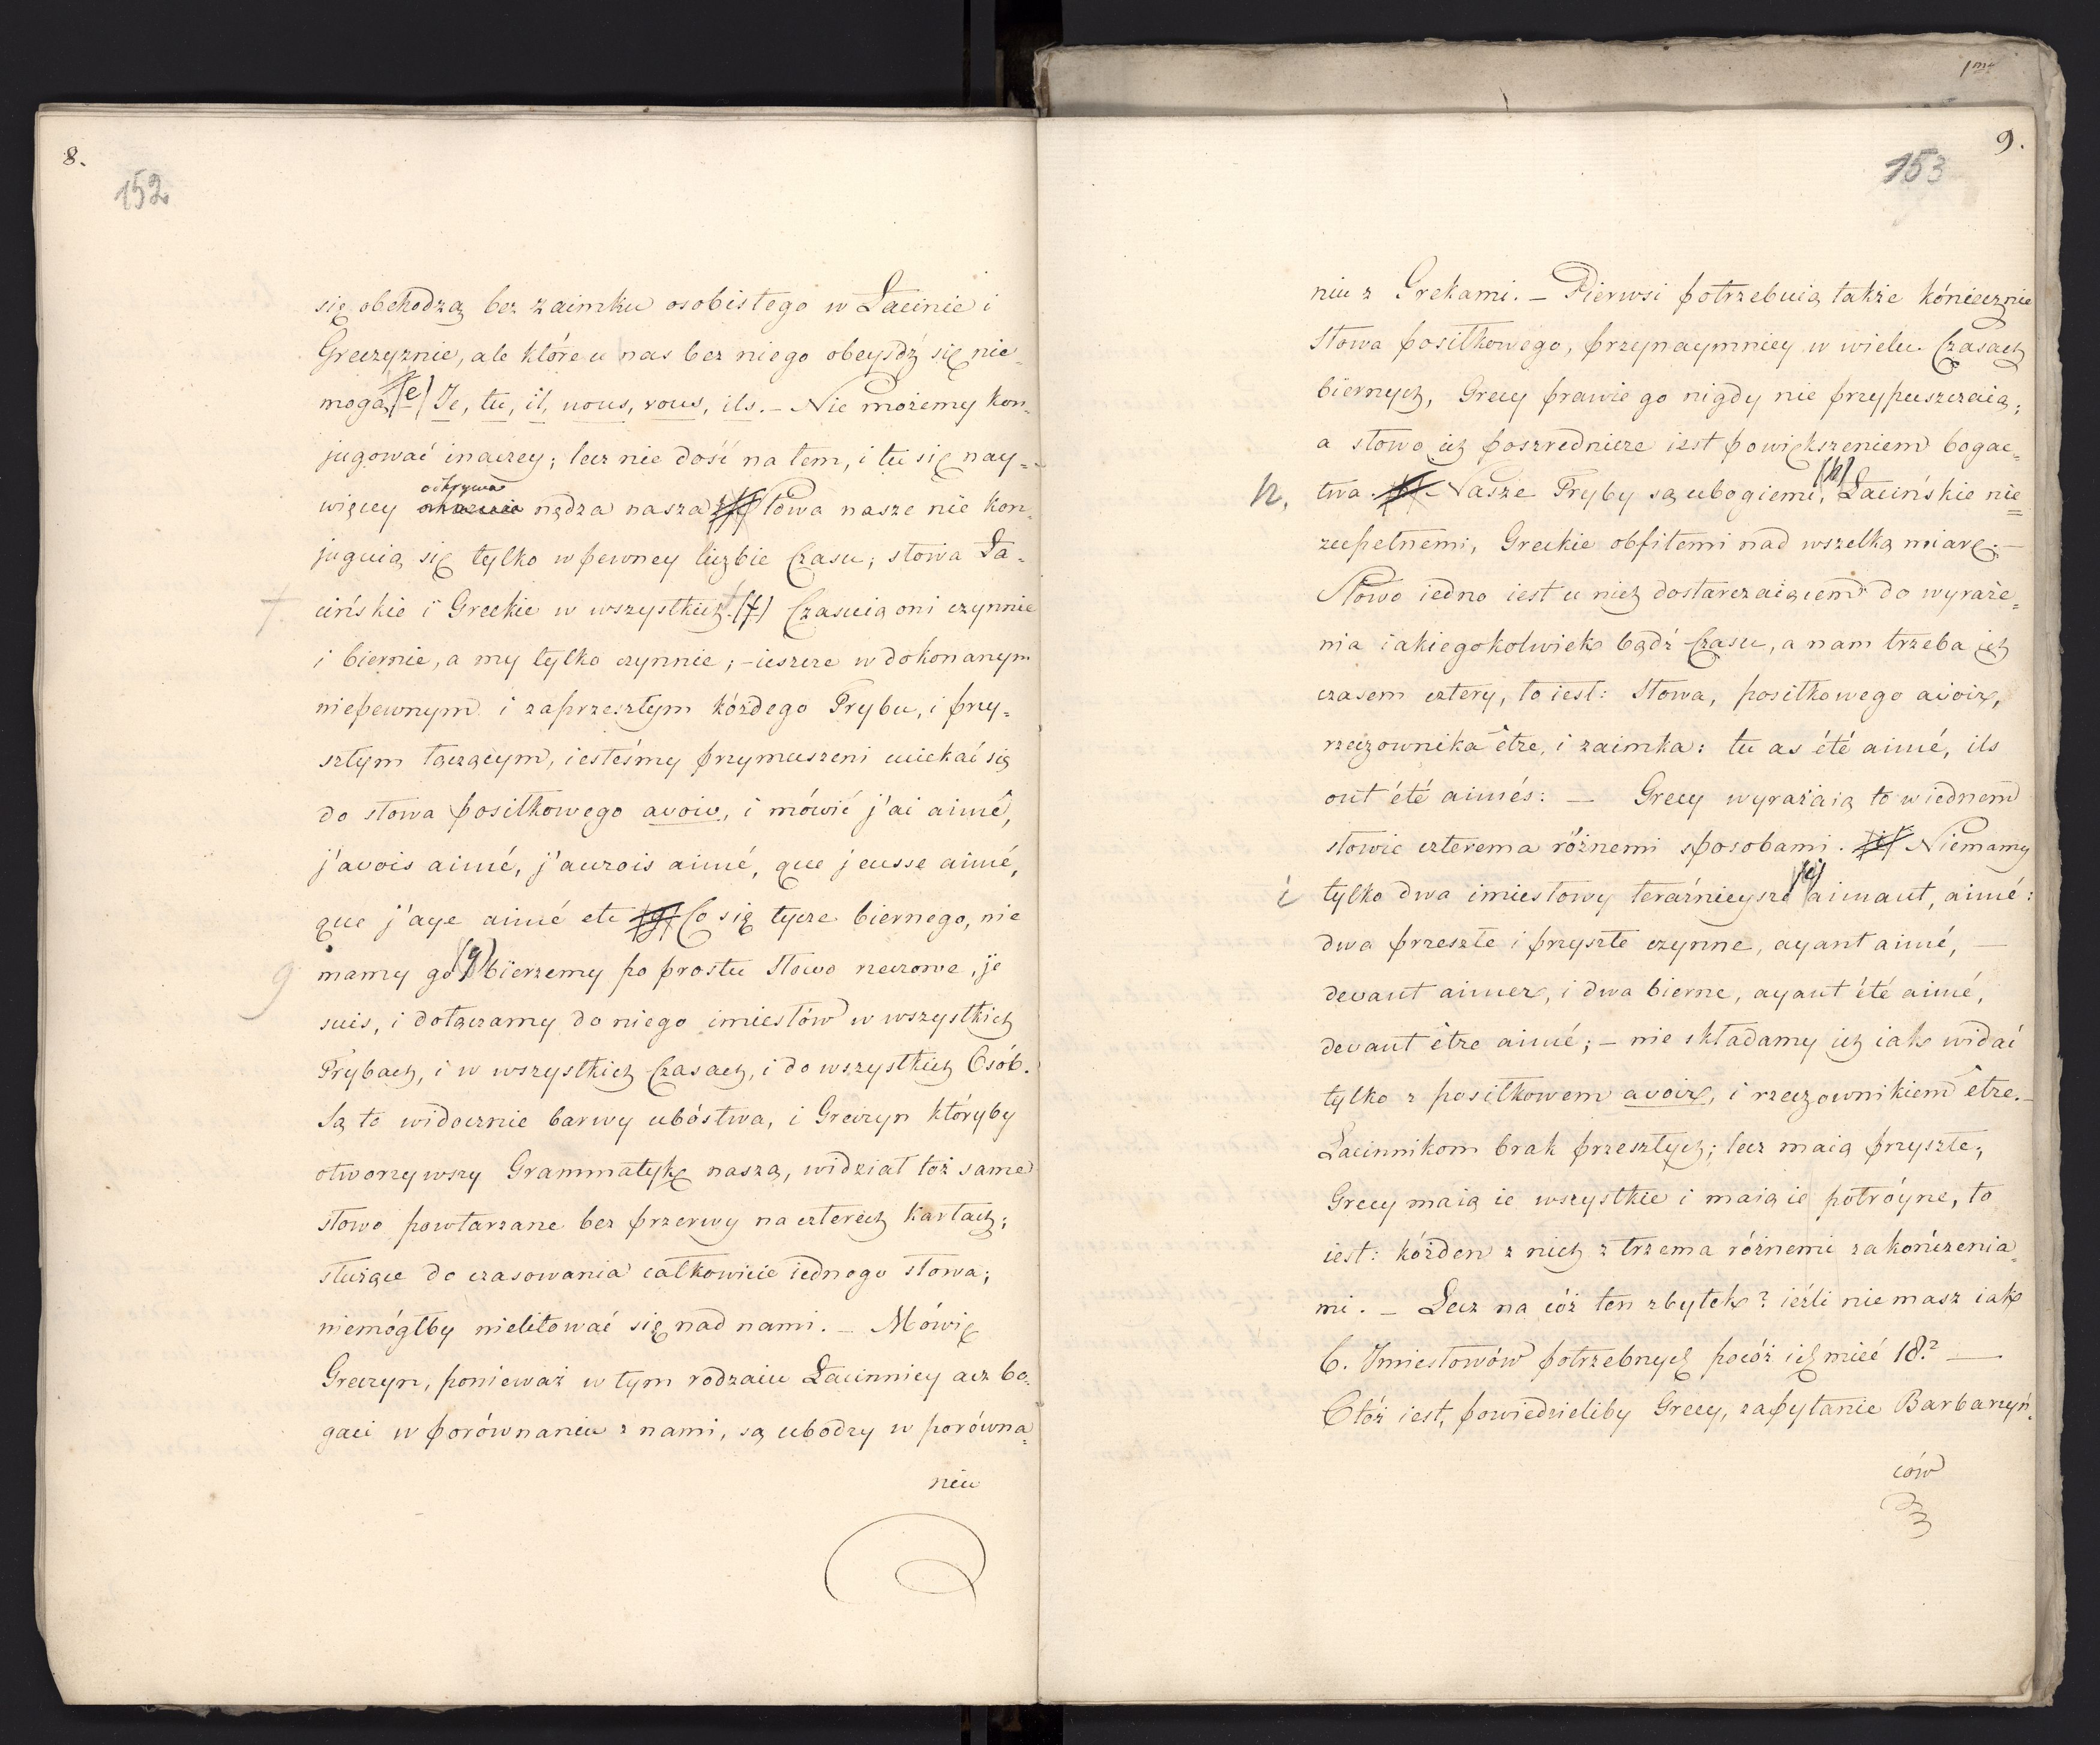 8.
152
się obchodzą bez zaimku osobistego w Łacinie i
Greczyznie, ale które u nas bez niego obeyśdź się nie=
mogą (e) Je, tu, il, nous, vous, ils. – Nie możemy kon=
jugować inaczey; lecz nie dość na tem, i tu się nay=
odkrywa
więcey okazuie nędza nasza słowa nasze nie kon=
juguią się tylko w pewney liczbie Czasu; słowa Ła=
cińskie i Greckie w wszystkich. (f) Czasuią oni czynnie
i biernie, a my tylko czynnie; – ieszcze w dokonanym
niepewnym i zaprzeszłym kóżdego Trybu, i przy=
szłym łączącym, iesteśmy przymuszeni uciekać się
do słowa posiłkowego avoir, i mówić j'ai aimé,
j'avois aimé, j'aurois aimé, que j'eusse aimé,
que j'aye aimé etc (g) Co się tycze biernego, nie
g mamy go (g) bierzemy po prostu słowo rzeczowe, je
suis, i dołączamy do niego imiesłów w wszystkich
Trybach, i w wszystkich Czasach, i do wszystkich Osób.
Są to widocznie barwy ubóstwa, i Greczyn któryby
otworzywszy Grammatykę naszą, widział toż same
słowo powtarzane bez przerwy na czterech kartach;
służące do czasowania całkowicie iednego słowa;
niemógłby nielitować się nad nami. – Mówię
Greczyn, ponieważ w tym rodzaiu Łacinnicy acz bo=
gaci w porównaniu z nami, są ubodzy w porówna=
niu
1me
9.
153
niu z Grekami. – Pierwsi potrzebuią także kóniecznie
słowa posiłkowego, przynaymniey w wielu Czasach
biernych, Grecy prawie go nigdy nie przypuszczaią;
a słowo ich poszrednicze iest powiększeniem bogac=
h. twa. (h) Nasze Tryby są ubogiemi, (h) Łacińskie nie=
zupełnemi, Greckie obfitemi nad wszelką miarę; –
Słowo iedno iest u nich dostarczaiącem do wyraże=
nia iakiegokolwiek bądź Czasu, a nam trzeba ich
czasem cztery, to iest: słowa, posiłkowego avoir,
rzeczownika être, i zaimka: tu as été aimé, ils
ont été aimés: – Grecy wyrażaią to w iednem
słowie czterema różnemi sposobami. (i) Niemamy
i tylko dwa imiesłowy teraźnieysze (i) aimant, aimé:
dwa przeszłe i przyszłe czynne, ayant aimé, –
devant aimer, i dwa bierne, ayant été aimé,
devant être aimé; – nie składamy ich iak widać
tylko z posiłkowem avoir, i rzeczownikiem être. –
Łacinnikom brak przeszłych; lecz maią przyszłe;
Grecy maią ie wszystkie i maią ie potróyne, to
iest: kóżden z nich z trzema różnemi zakończenia=
mi. – Lecz na cóż ten zbytek? ieźli nie masz iak
6. Imiesłowów potrzebnych pocóż ich mieć 18.? –
Otóż iest, powiedzieliby Grecy, zapytanie Barbarzyń=
ców